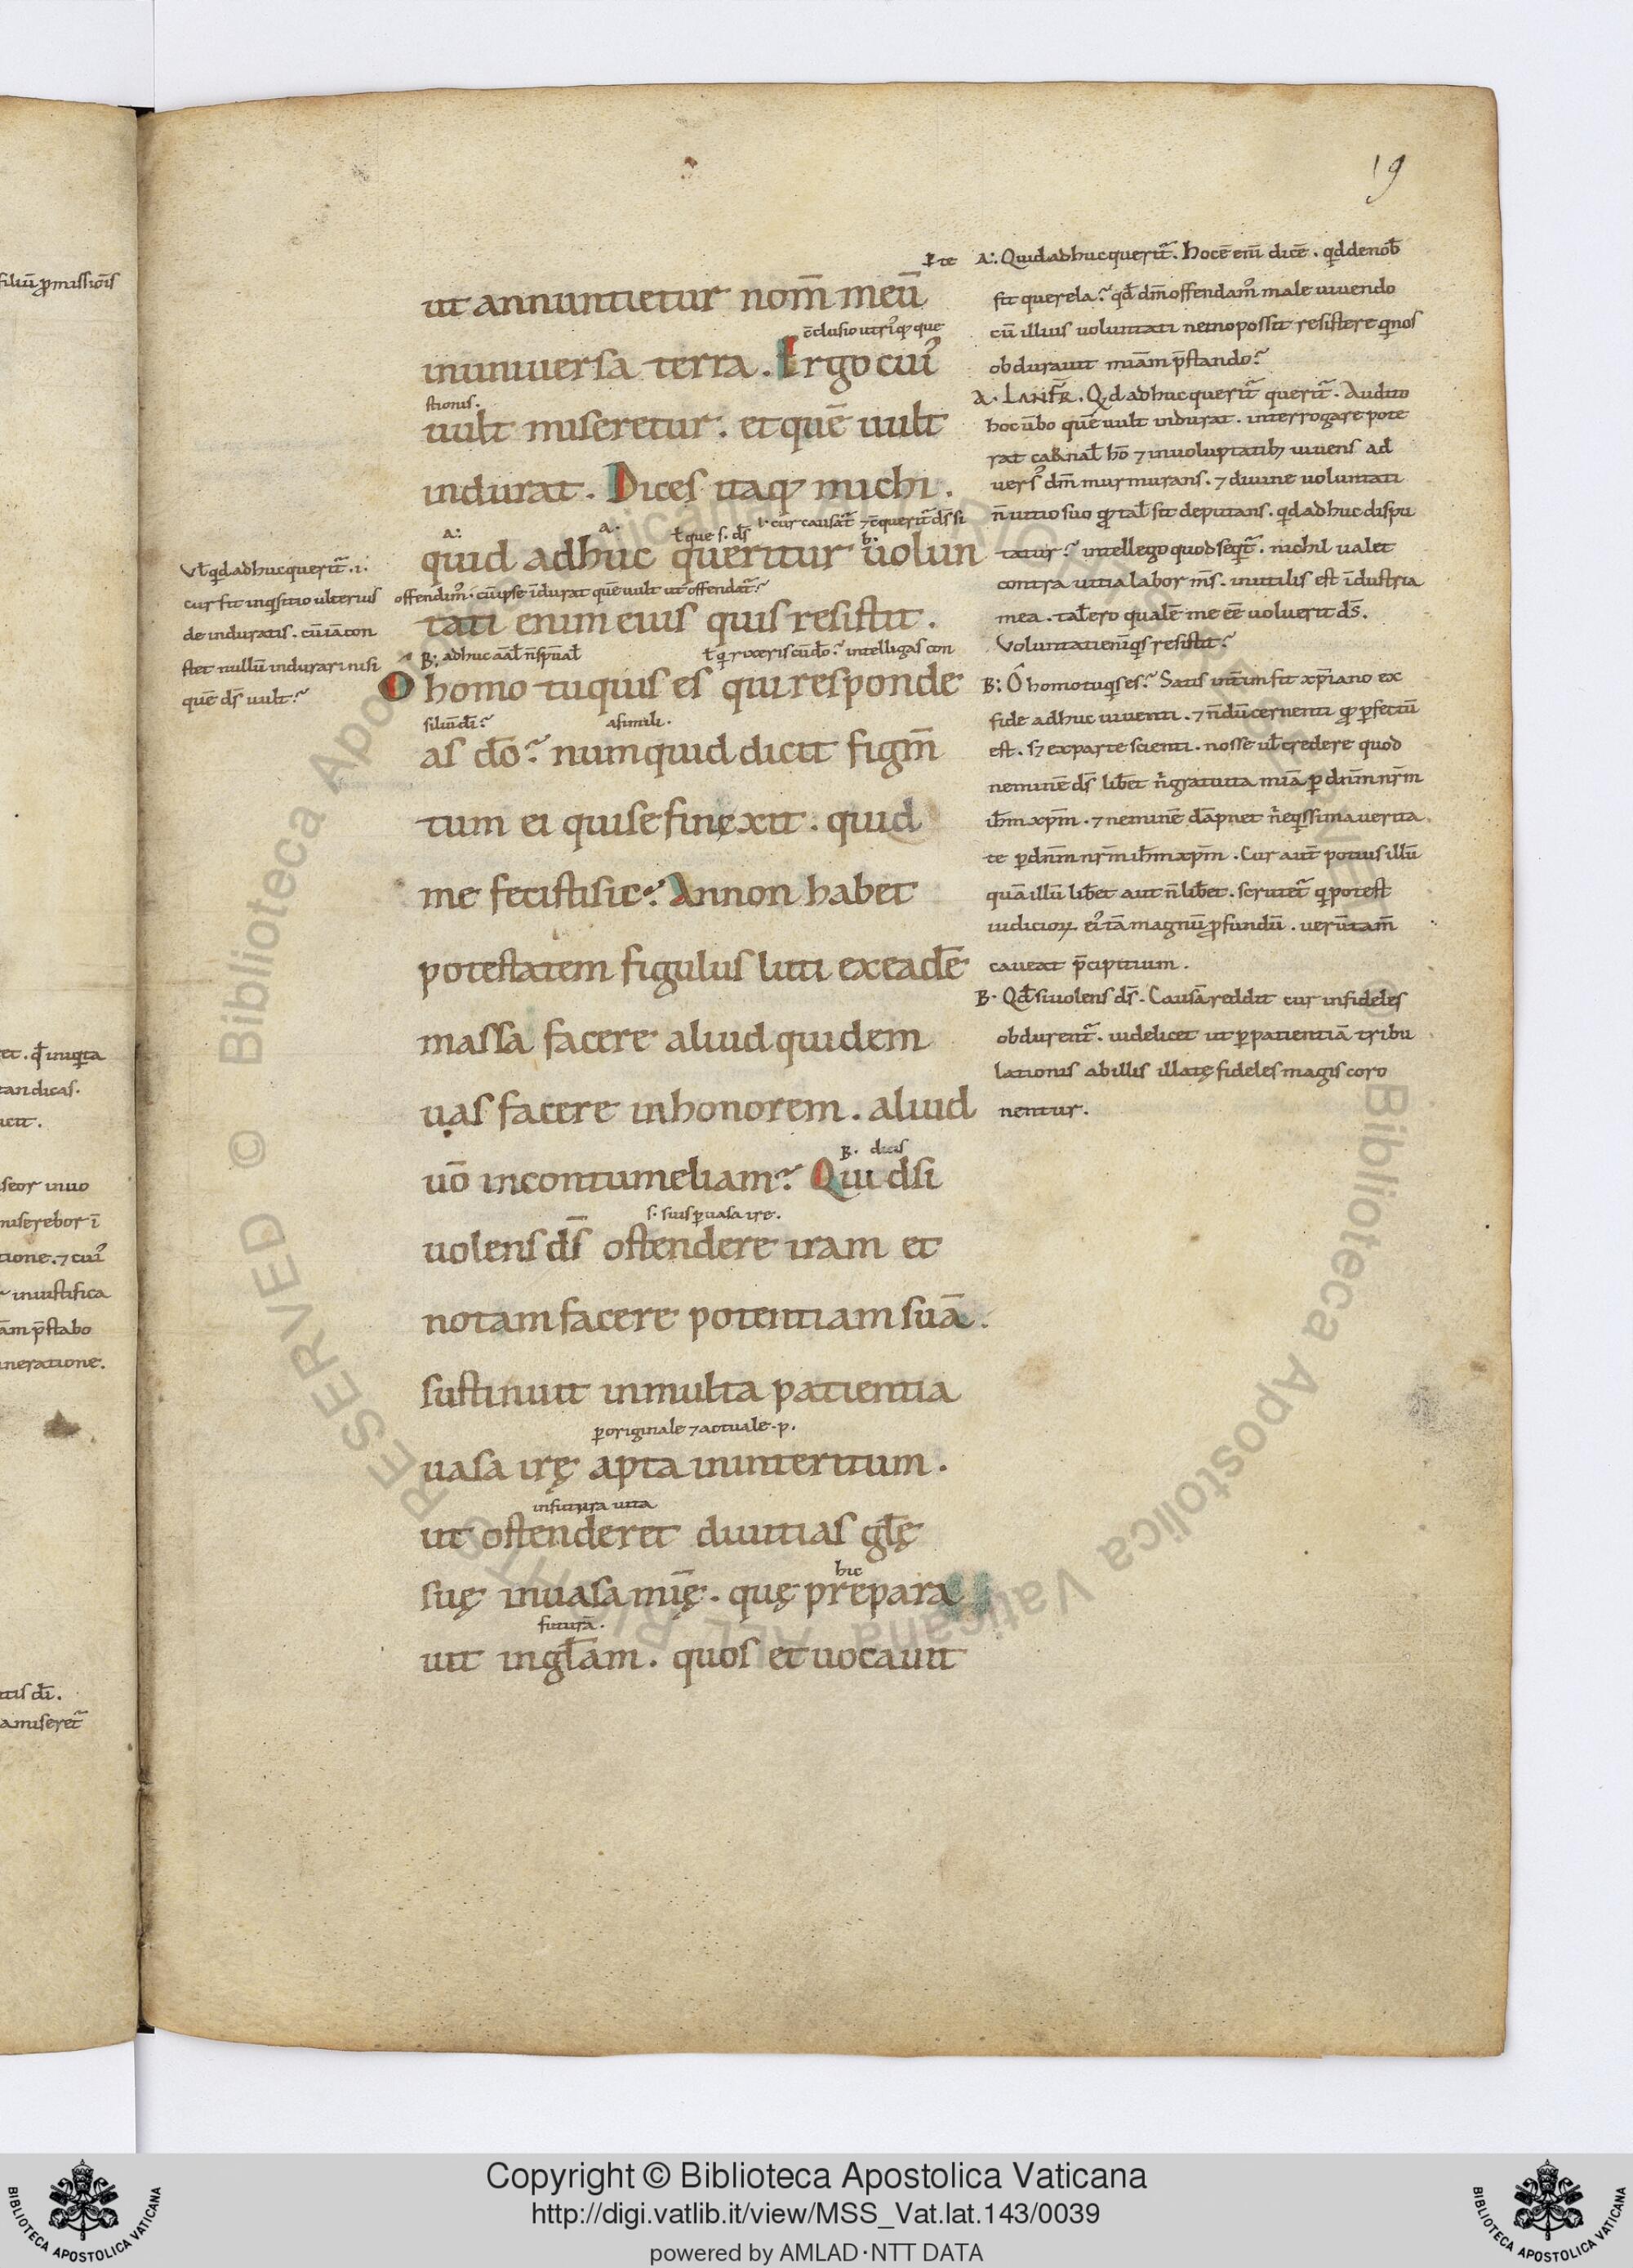 19
ut annuntietur nom̄ meū
inuniuersa terra. Ergo cui᾽
c̄clusio utri᾽q; que
stionis.
uult miseretur. et quē uult
indurat. Dices itaq; michi.
ł cur causat̄ ⁊ c̄querit̄ d̄s si
A: a. ł que s. d̄s b.
quid adhuc queritur uolun
offendim᾽. cū ipse īdurat quē uult ut offendat̄?
tati enim eius quis resistit.
B: adhuc aāł n̄ sp̄uał
intelligas con
O homo tu quis es qui responde
siliū dī? a simili.
as dō? numquid dicit figm̄
tum ei qui se finxit. quid
me fecisti sic? Annon habet
potestatem figulus luti ex eadē
massa facere aliud quidem
uas facere inhonorem. aliud
uō incontumeliam? Qui dsi
B.
s. suis p̱ uasa ire.
uolens d̄s ostendere iram et
notam facere potentiam suā.
sustinuit inmulta patientia
p̱ originale ⁊ actuale. p.
uasa irę apta ininteritum.
in futura uita
ut ostenderet diuitias głę
hic
suę inuasa mīę. quę prepara
futurā.
uit ingłam. quos et uocauit
Vł qd adhuc querit̄. i.
cur fit inqisitio ulterius
de induratis. cū iā con
stet nullū indurari nisi
quē d̄s uult?
A: Quid adhuc querit̄. Hoc ē enī dicē. qd de nob̄
fit querela? qđ dm̄ offendam᾽ male uiuendo
cū illius uoluntati nemo possit resistere qi nos
obdurauit miam p̄stando?
A. LANFR̄. Qd adhuc querit̄ querit̄. Audito
hoc ūbo quē uult indurat. interrogare pote
rat carnał hō ⁊ in uoluptatib; uiuens ad
uers᾽ dm̄ murmurans. ⁊ diuine uoluntati
n̄ uitio suo qđ tał sit deputans. qd adhuc dispu
tatur? intellego quod seqit̄. nichil ualet
contra uitia labor m̄s. inutilis est īdustria
mea. tał ero qualē me eē uoluerit d̄s.
Voluntati enī qis resistit?
B: Ô homo tu qis es? Satis int̄im sit xp̄iano ex
fide adhuc uiuenti. ⁊ n̄dū cernenti qđ p̱fectū
est. s; ex parte scienti. nosse uł credere quod
neminē d̄s lib̄et n̄ gratuita mīa p̱ dn̄m nr̄m
ih̄m xp̄m. ⁊ neminē dāpnet n̄ eqissima uerita
te p̱ dn̄m nr̄m ih̄m xp̄m. Cur aut̄ potius illū
quā illū lib̄et aut n̄ lib̄et. scrutet̄ qi potest
iudicioꝝ ei᾽ tā magnū p̱fundū. uerūtam̄
caueat p̄cipitium.
B. Qđ si uolens d̄s. Causā reddit cur infideles
obdurent̄. uidelicet ut p̱ patientiā tribu
lationis ab illis illatę fideles magis coro
nentur.
filiū p̱missiōis
tan dicas.
miserebor ī
tione. ⁊ cui᾽
iniustifica
ām p̄stabo
neratione.
a miseret̄
Copyright © Biblioteca Apostolica Vaticana
http://digi.vatlib.it/view/MSS_Vat.lat.143/0039
powered by AMLAD·NTT DATA
BIBLIOTECA APOSTOLICA VATICANA
BIBLIOTECA APOSTOLICA VATICANA